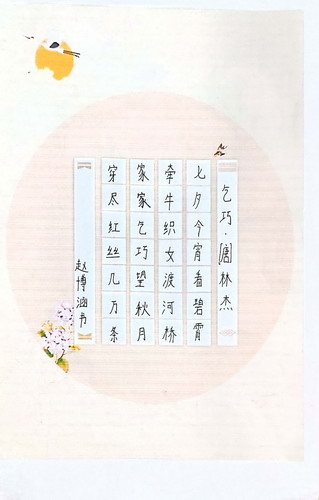 乞巧·[唐]林杰
七夕今宵看碧霄
牵牛织女渡河桥
家家乞巧望秋月
穿尽红丝几万条
赵博涵书